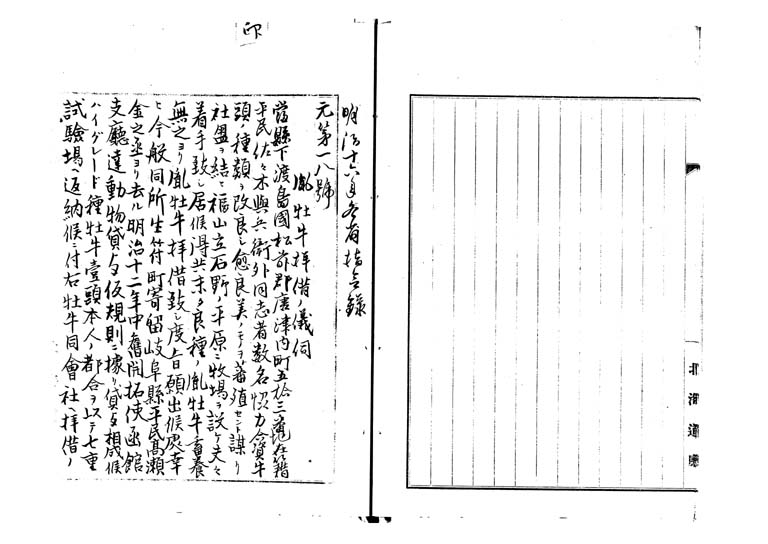 北海道廳
明治十六年各省指令録
元第一八號
胤牡牛拝借ノ儀伺
當縣下渡島國松前郡唐津内町五拾三番地在籍
平民佐々木與兵衛外同志者数名恊力合資牛
頭ノ種類ヲ改良シ愈良美ノモノヲ蕃殖セント謀リ
社盟ヲ結ヒ福山立石野ノ平原ニ牧場ヲ設ケ夫々
着手致シ居候得共未タ良種ノ胤牡牛畜養
無之ヨリ胤牡牛拝借致シ度旨願出候處幸
ヒ今般同所生符町寄留岐阜縣平民髙瀬
金之丞ヨリ去ル明治十二年中舊開拓使函館
支廳達動物貸与仮規則ニ據リ貸与相成候
ハイグレード種牡牛壹頭本人ノ都合ヲ以テ七重
試驗場ヘ返納候ニ付右牡牛同會社ヘ拝借ノ
印